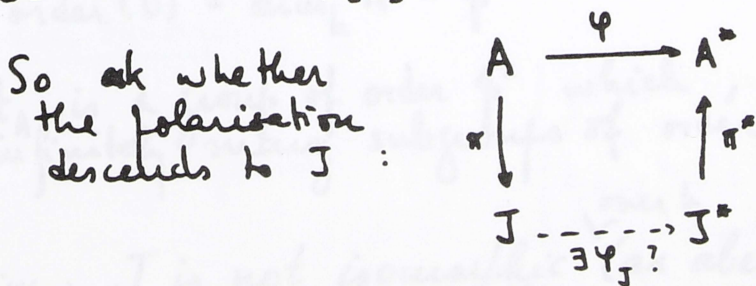 So ask whether
the polarisation
descends to J :
A φ A*
π π*
J ∃ φ_J ? J*